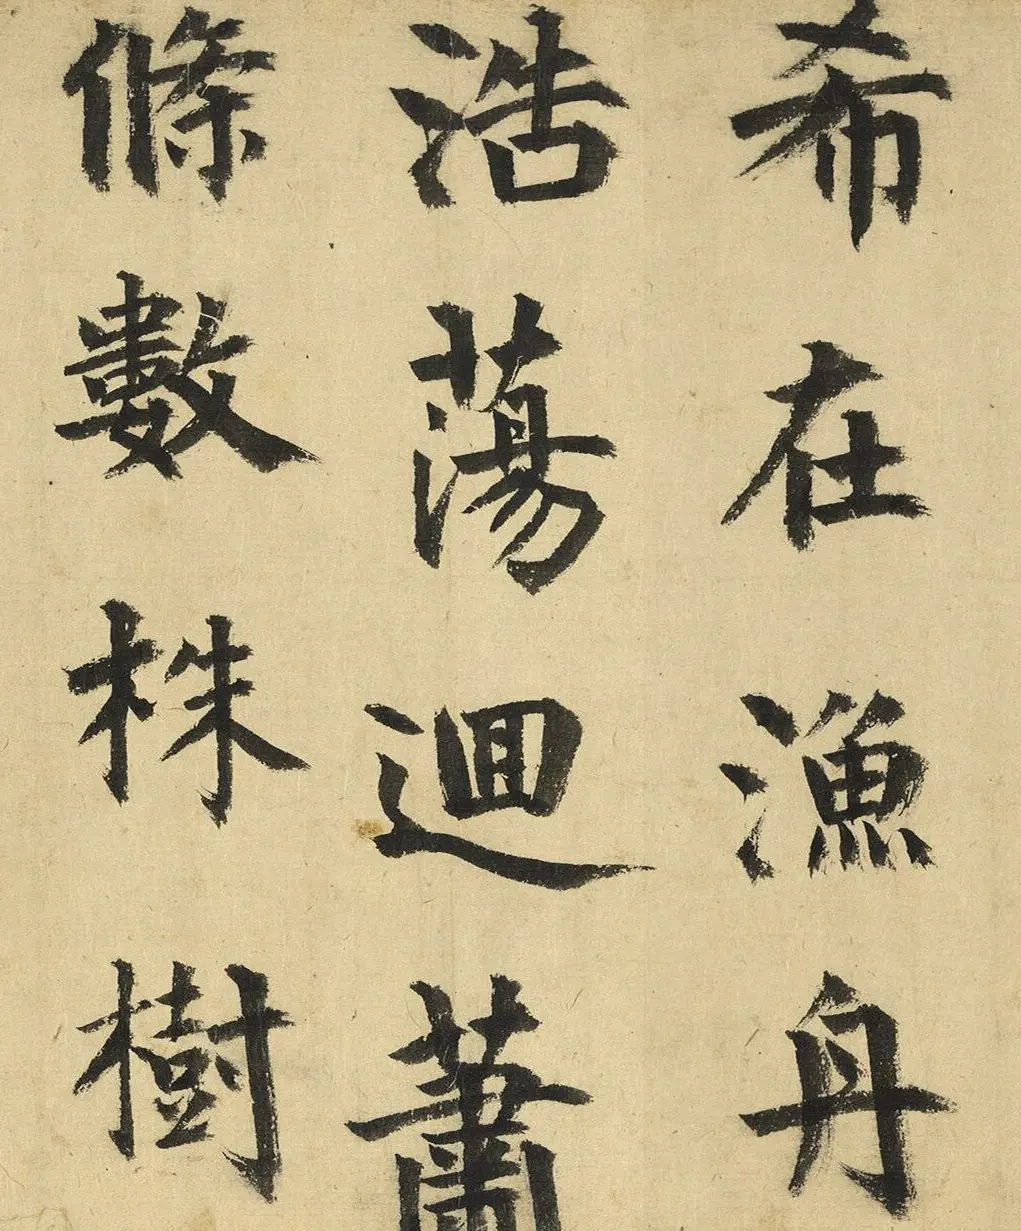 希在漁舟
浩蕩迴蕭
條數株樹